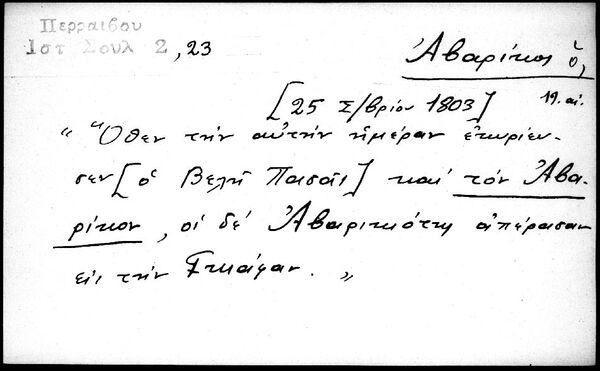 Περραιβου
Ιστ Σουλ 2, 23
Ἀβαρίκος ὁ,
[25 Σ/βρίου 1803] 19. αἰ.
" Ὅθεν τὴν αὐτὴν ἡμέραν ἐκυρίευ-
σεν [ὁ Βελῆ Πασᾶς] καί τὸν Ἀβα-
ρίκον, οἱ δέ Ἀβαρικιότες ἀπέρασαν
εἰς τὴν Γκιάφαν. „